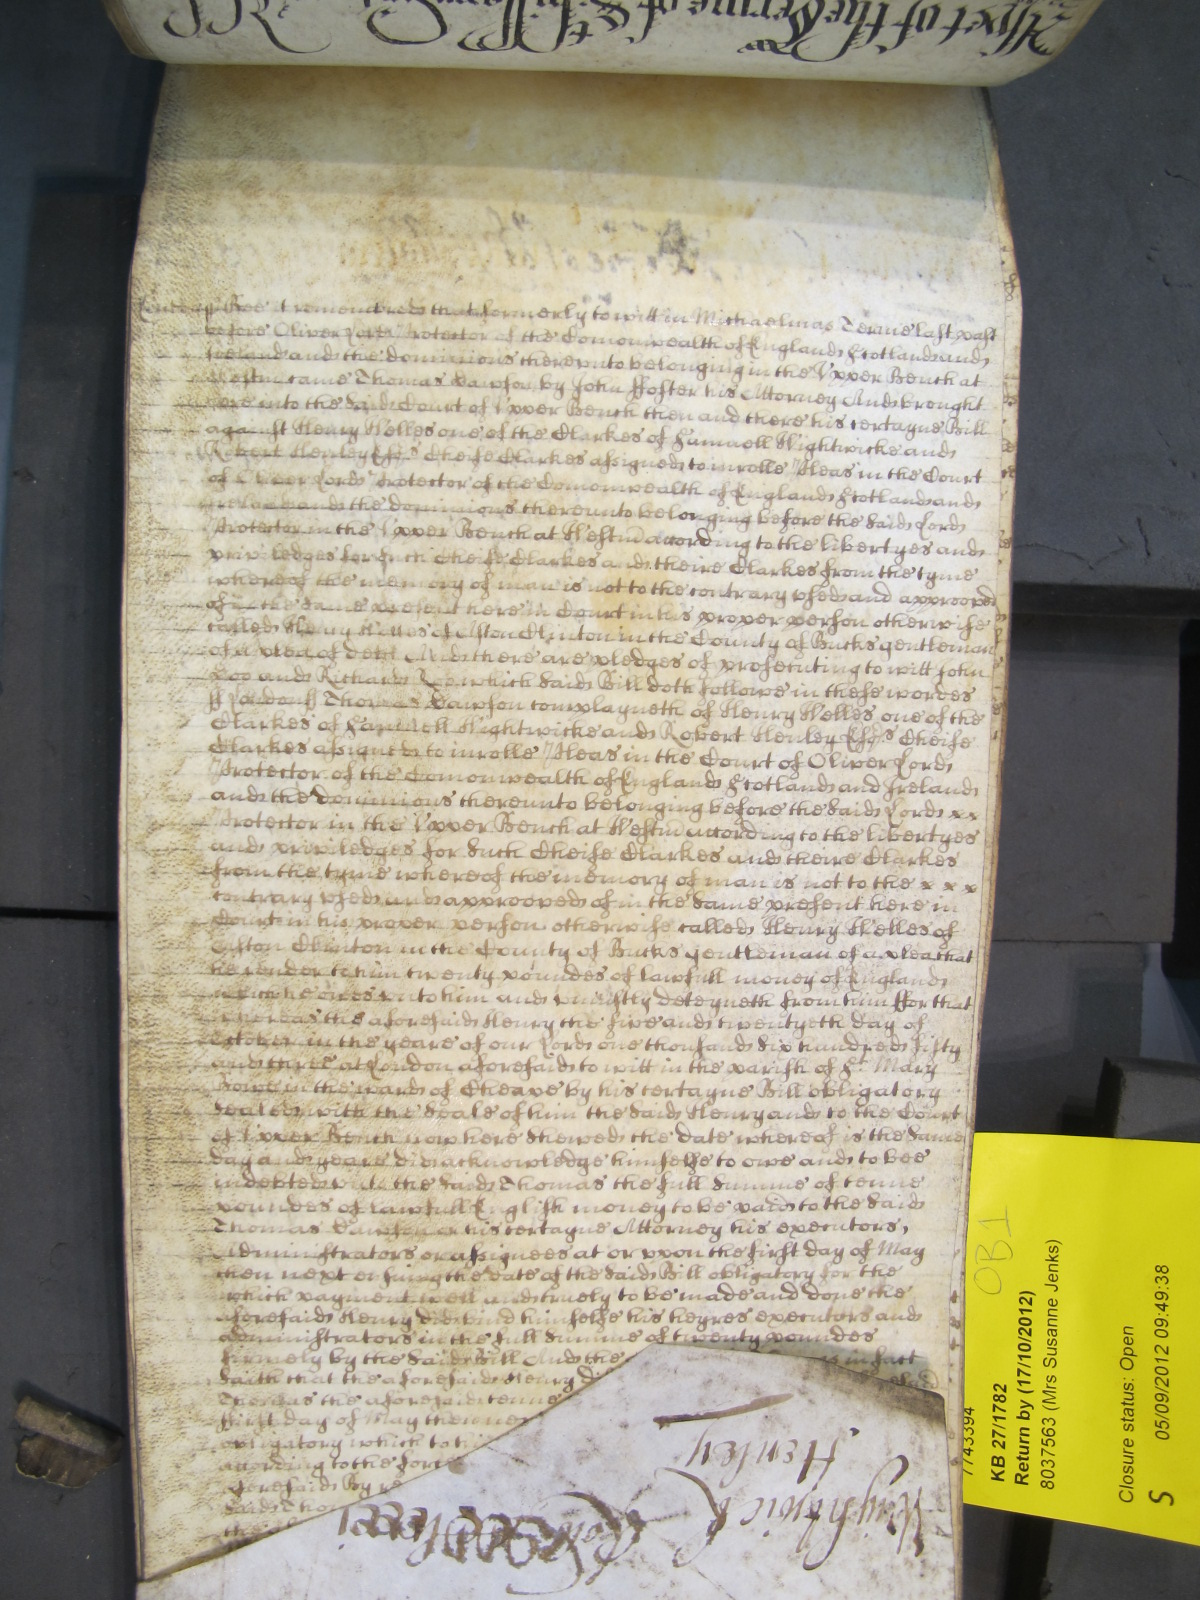 London ss Bee it remembred that formerly to witt in Michaelmas Terme last past
before Oliver Lord Protector of the Comonwealth of England Scotland and
Ireland and the dominions thereunto belonging in the Upper Bench at
Westm came Thomas Dawson by John Foster his Attorney And brought
here into the said Court of Upper Bench then and there his certayne Bill
against Henry Welles one of the Clarkes of Samuell Wightwicke and
Robert Henley Esqrs Cheife Clarkes assigned to inrolle Pleas in the Court
of Oliver Lord Protector of the Comonwealth of England Scotland and
Ireland and the dominions thereunto belonging before the said Lord
Protector in the Upper Bench at Westm according to the libertyes and
priviledges for such Cheife Clarkes and theire Clarkes from the tyme
whereof the memory of man is not to the contrary used and approoved
of in the same present here in Court in his proper person otherwise
called Henry Welles of Aston Clinton in the County of Bucks gentleman
of a plea of debt And there are pledges of prosecuting to witt John
Doo and Richard Roo which said Bill doth followe in these wordes
ss London ss Thomas Dawson complayneth of Henry Welles one of the
Clarkes of Samuell Wightwicke and Robert Henley Esqrs Cheife
Clarkes assigned to inrolle Pleas in the Court of Oliver Lord
Protector of the Comonwealth of England Scotland and Ireland
and the dominions thereunto belonging before the said Lord x x
Protector in the Upper Bench at Westm according to the libertyes
and priviledges for such Cheife Clarkes and theire Clarkes
from the tyme whereof the memory of man is not to the x x x
contrary used and approoved of in the same present here in
Court in his proper person otherwise called Henry Welles of
Aston Clinton in the County of Bucks gentleman of a plea that
he render to him twenty poundes of lawfull money of England
which he owes unto him and unjustly deteyneth from him ffor that
whereas the aforesaid Henry the five and twentyeth day of
October in the yeare of our Lord one thousand six hundred fifty
and three at London aforesaid to witt in the parish of St Mary
Bowe in the ward of Cheape by his certayne Bill obligatory
sealed with the seale of him the said Henry and to the Court
of Upper Bench now here shewed the date whereof is the same
day and yeare did acknowledge himselfe to owe and to bee
indebted unto the said Thomas the full summe of tenne
poundes of lawfull English money to be paid to the said
Thomas Dawson or his certayne Attorney his executors,
Administrators or assignees at or upon the first day of May
then next ensuing the date of the said Bill obligatory for the
which payment well and truely to be made and done the
aforesaid Henry did bind himselfe his heyres executors and
administrators in the full summe of twenty poundes
firmely by the said Bill And the in fact
saith that the aforesaid Henry di
Thomas the aforesaid tenne
first day of May then nex
obligatory which to hi
according to the form
aforesaid By re
said Tho
Wightwick
Henley
OB1
7743394
KB 27/1782
Return by (17/10/2012)
8037563 (Mrs Susanne Jenks)
Closure status: Open
05/09/2012 09:49:38
S